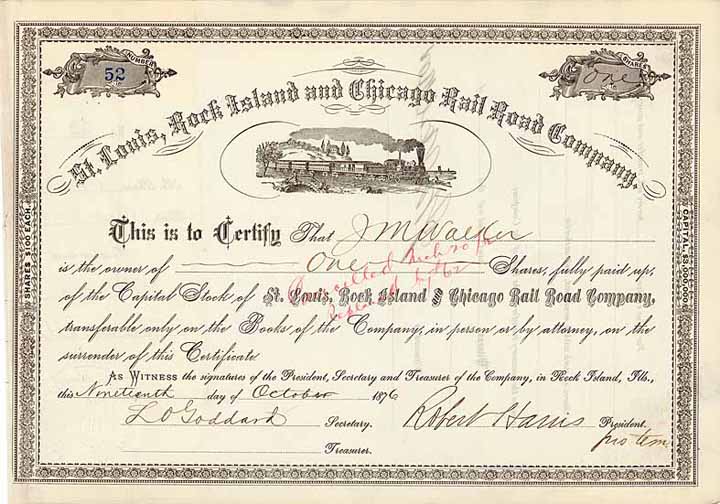 NUMBER
52
SHARES
One
St. Louis, Rock Island and Chicago Rail Road Company.
This is to Certify That J M Walker
is the owner of One Shares, fully paid up,
of the Capital Stock of St. Louis, Rock Island and Chicago Rail Road Company,
transferable only on the Books of the Company, in person or by attorney, on the
surrender of this Certificate
As Witness the signatures of the President, Secretary and Treasurer of the Company, in Rock Island, Ills.,
this Nineteenth day of October 1876
L O Goddard Secretary. Robert Harris President.
pro tem
Treasurer.
SHARES $100 EACH.
CAPITAL, $3,000,000
Cancelled
by 62